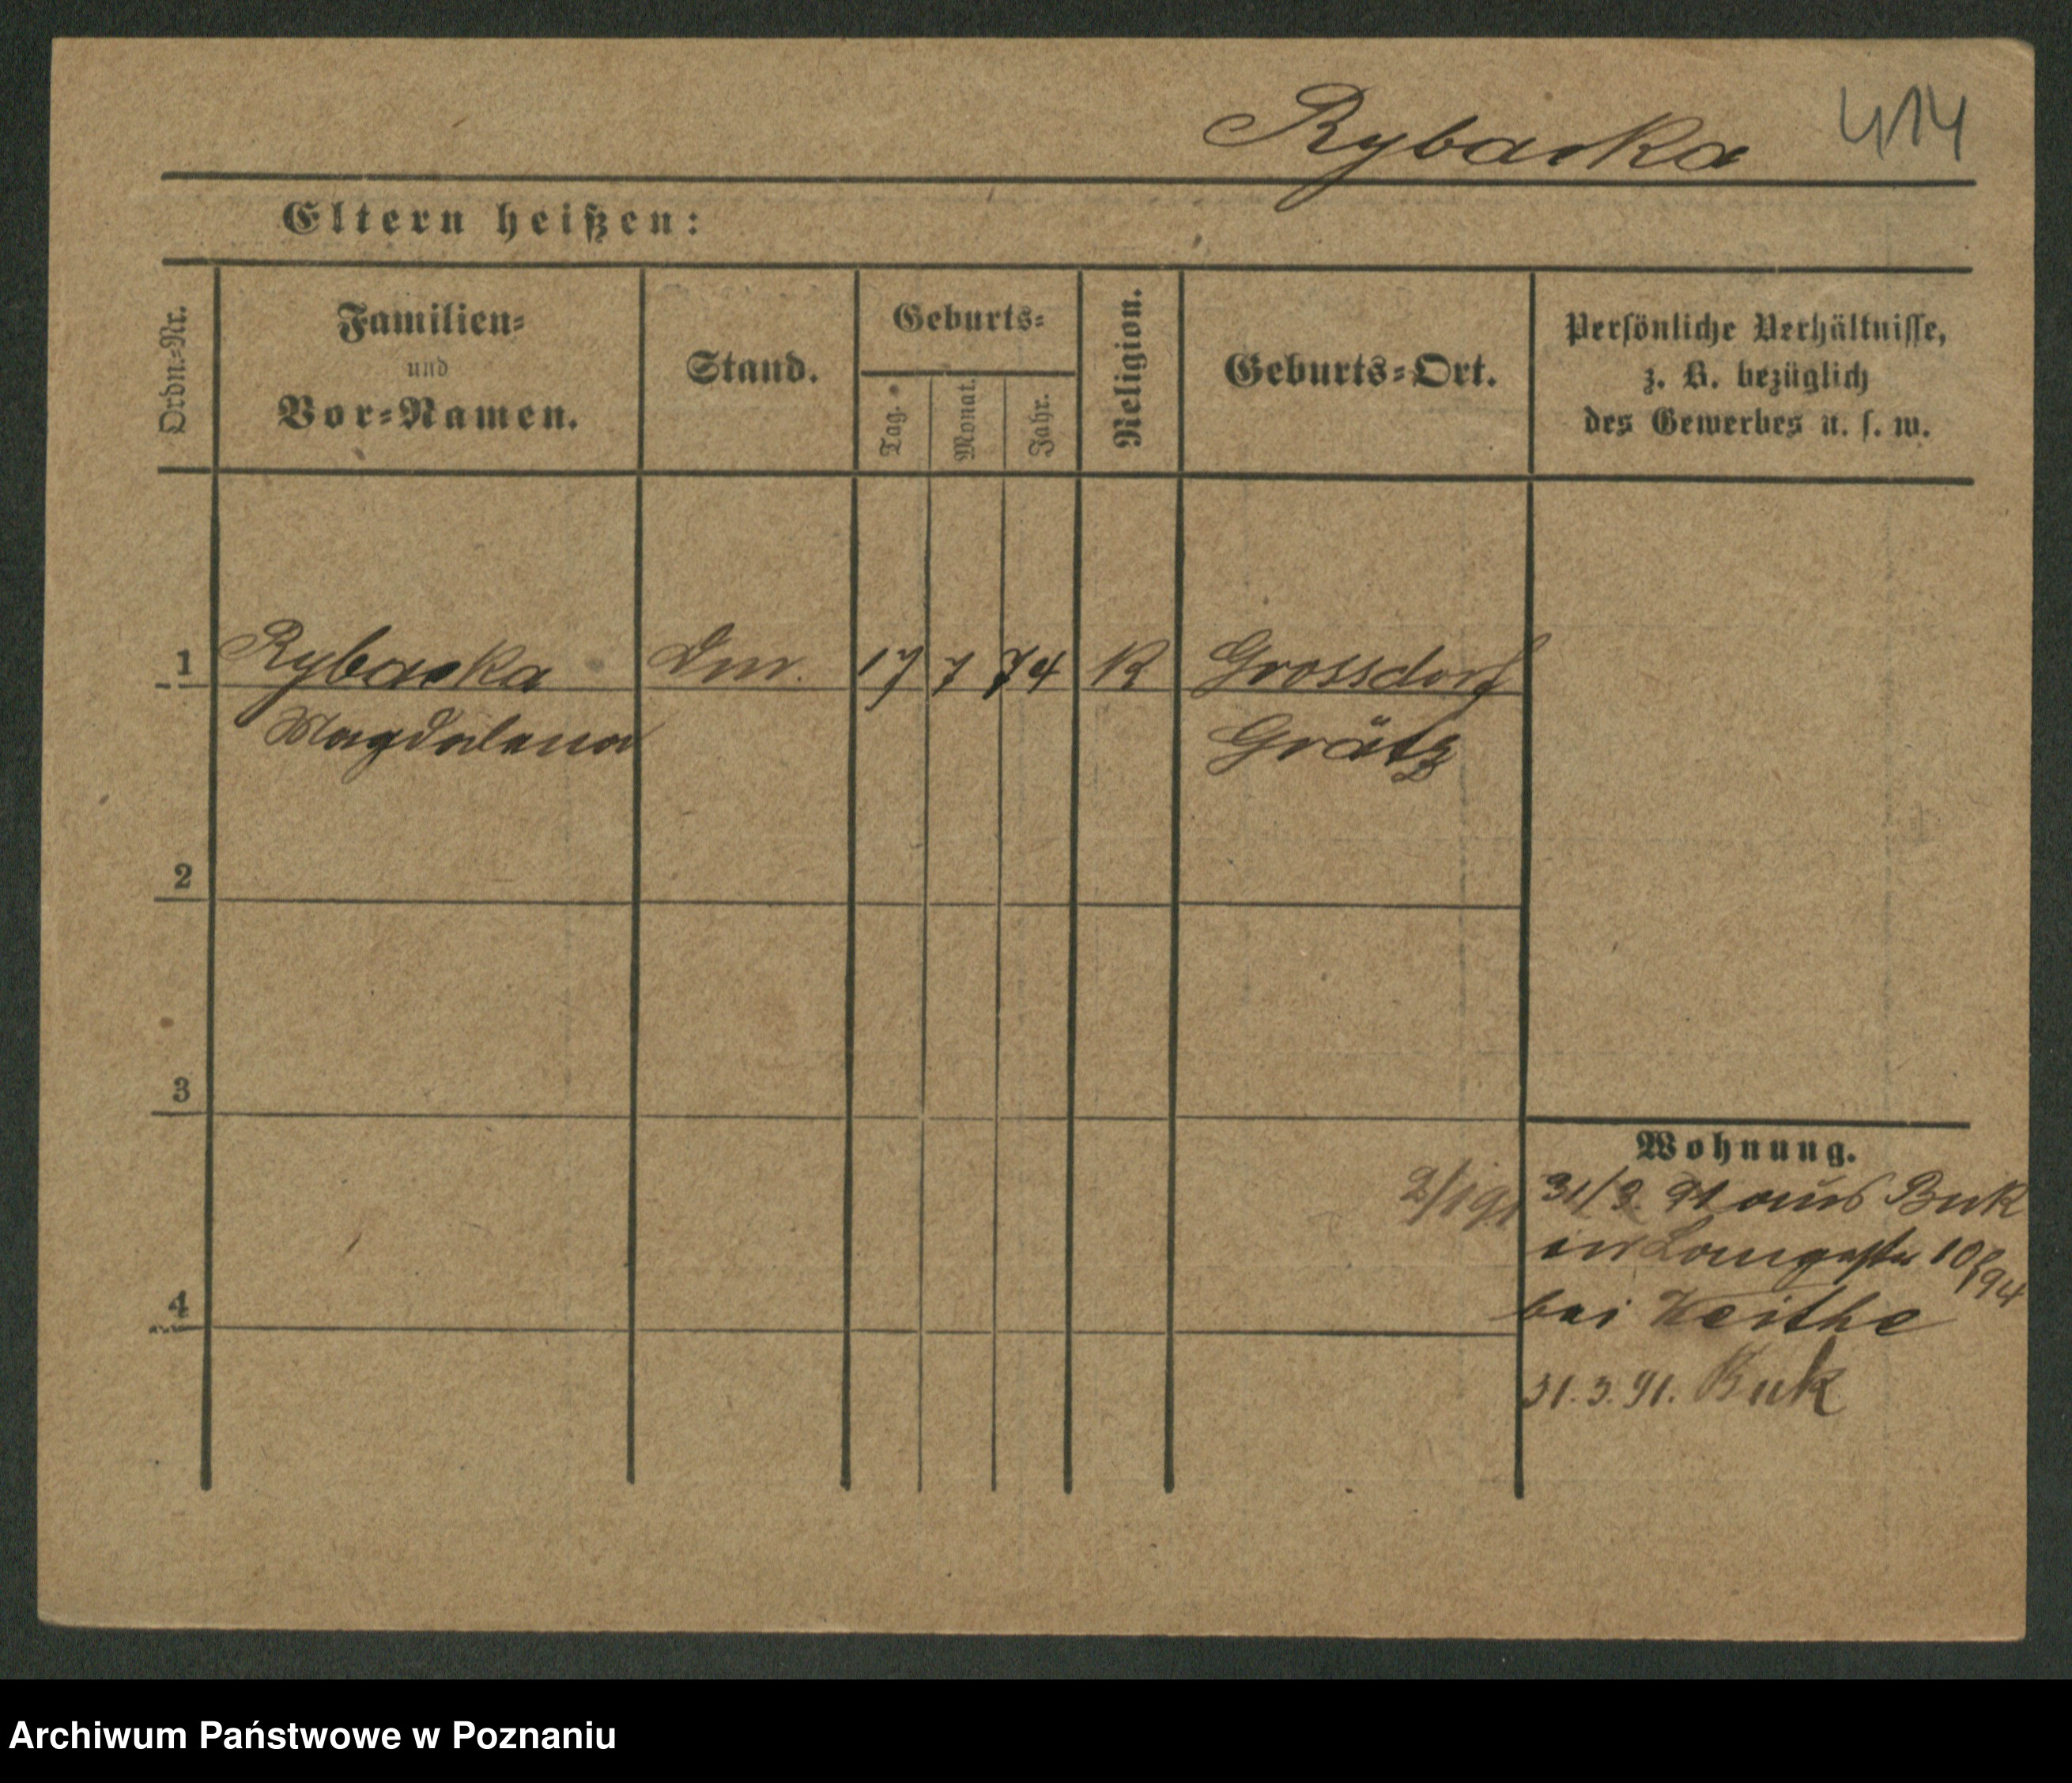 Rybacka 414
Eltern heißen:
Ordn.=Nr.
Familien=
und
Vor=Namen.
Stand.
Geburts=
Tag.
Monat.
Jahr.
Religion.
Geburts=Ort.
Persönliche Verhältnisse,
z. B. bezüglich
des Gewerbes u. s. w.
1 Rybacka 17 7 74 K Grossdorf
Magdalena Grätz
2
3
4
Wohnung.
31/3. 91 aus Buk
in 10
bei
31.3.91. Buk
Archiwum Państwowe w Poznaniu